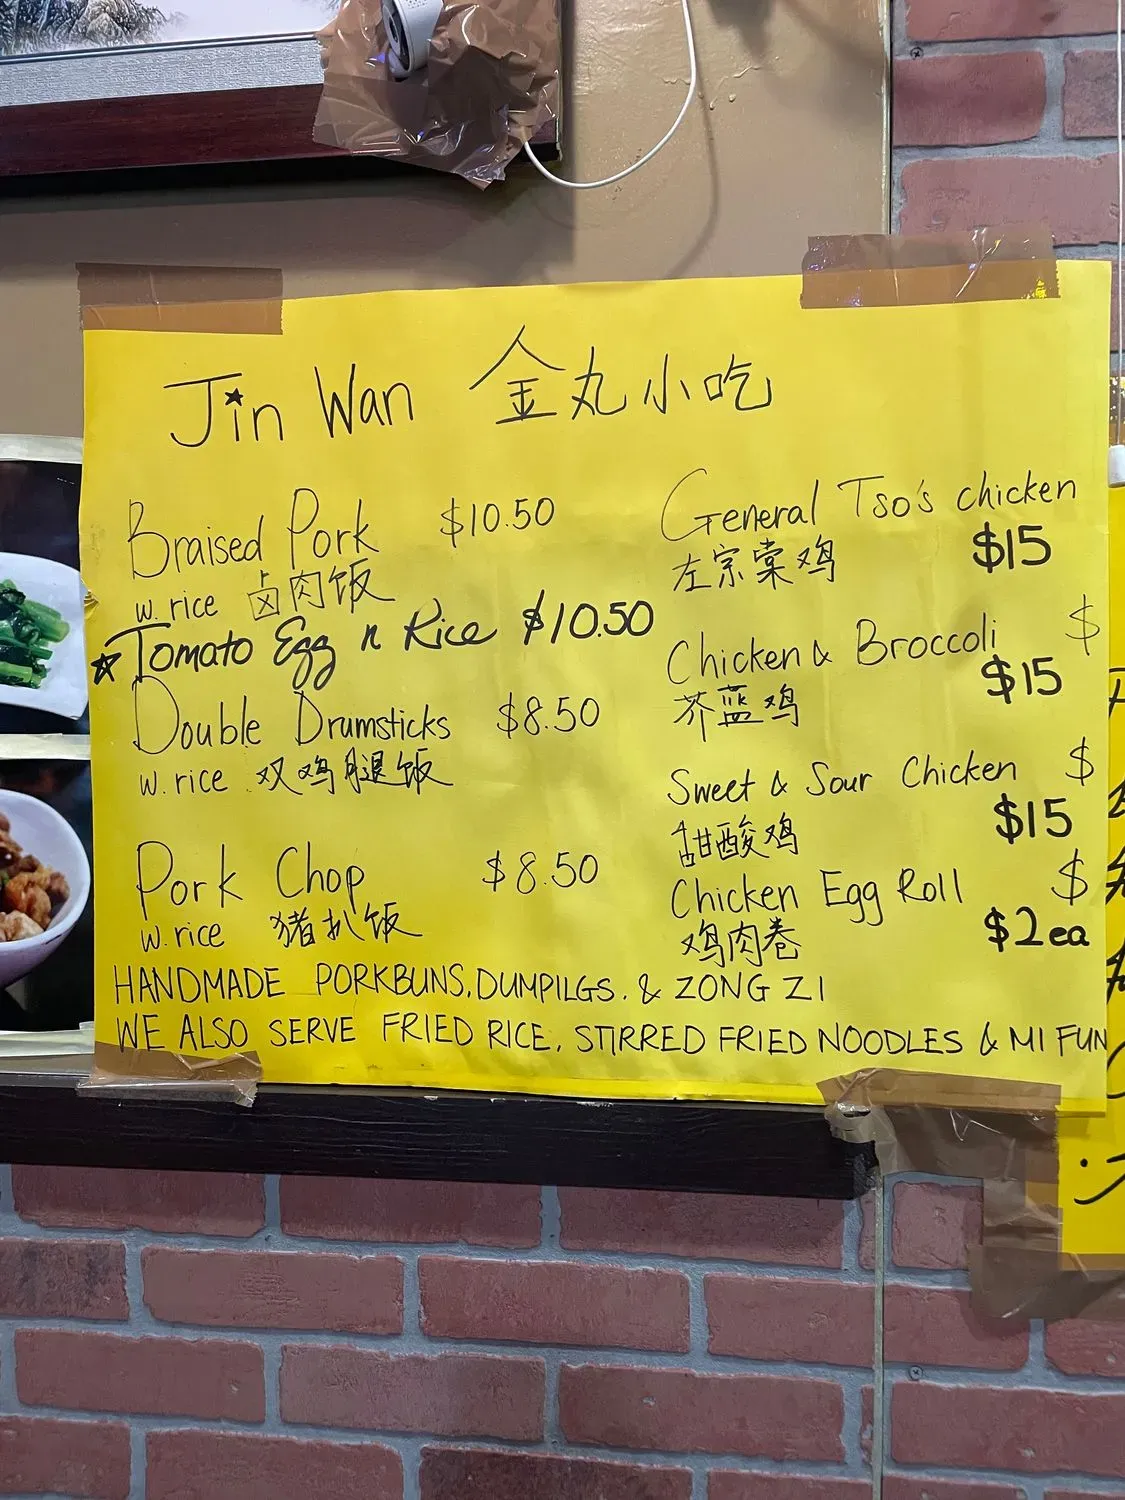 Jin Wan 金丸小吃
Braised Pork $10.50
w. rice 卤肉饭
☆ Tomato Egg n Rice $10.50
Double Drumsticks $8.50
w. rice 双鸡腿饭
Pork Chop $8.50
w. rice 猪扒饭
General Tso's chicken
$15
左宗棠鸡
Chicken & Broccoli $
$15
芥蓝鸡
Sweet & Sour Chicken $
$15
甜酸鸡
Chicken Egg Roll $
$2ea
鸡肉卷
HANDMADE PORKBUNS, DUMPILGS. & ZONG ZI
WE ALSO SERVE FRIED RICE, STIRRED FRIED NOODLES & MI FUN